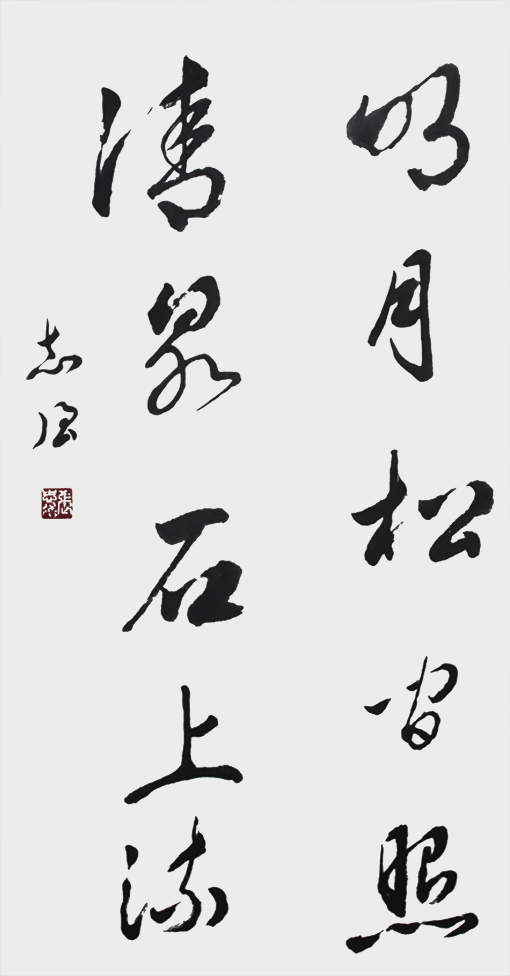 明月松间照
清泉石上流
志